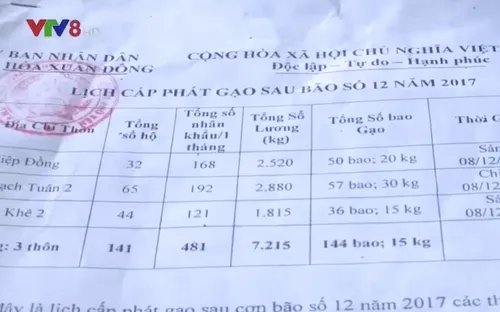 VTV8 HD
Y BAN NHÂN DÂN CỘNG HÒA XÃ HỘI CHỦ NGHĨA VIỆT
HÒA XUÂN ĐÔNG Độc lập - Tự do - Hạnh phúc
LỊCH CẤP PHÁT GẠO SAU BÃO SỐ 12 NĂM 2017
Địa Chỉ Thôn Tổng số hộ Tổng số nhân khẩu/1 tháng Tổng Số Lương (kg) Tổng Số bao Gạo Thời G
iệp Đồng 32 168 2.520 50 bao; 20 kg Sán 08/12/
ạch Tuân 2 65 192 2.880 57 bao; 30 kg Chi 08/12/
Khê 2 44 121 1.815 36 bao; 15 kg Sá 08/12
g: 3 thôn 141 481 7.215 144 bao; 15 kg
Đây là lịch cấp phát gạo sau cơn bão số 12 năm 2017 các th